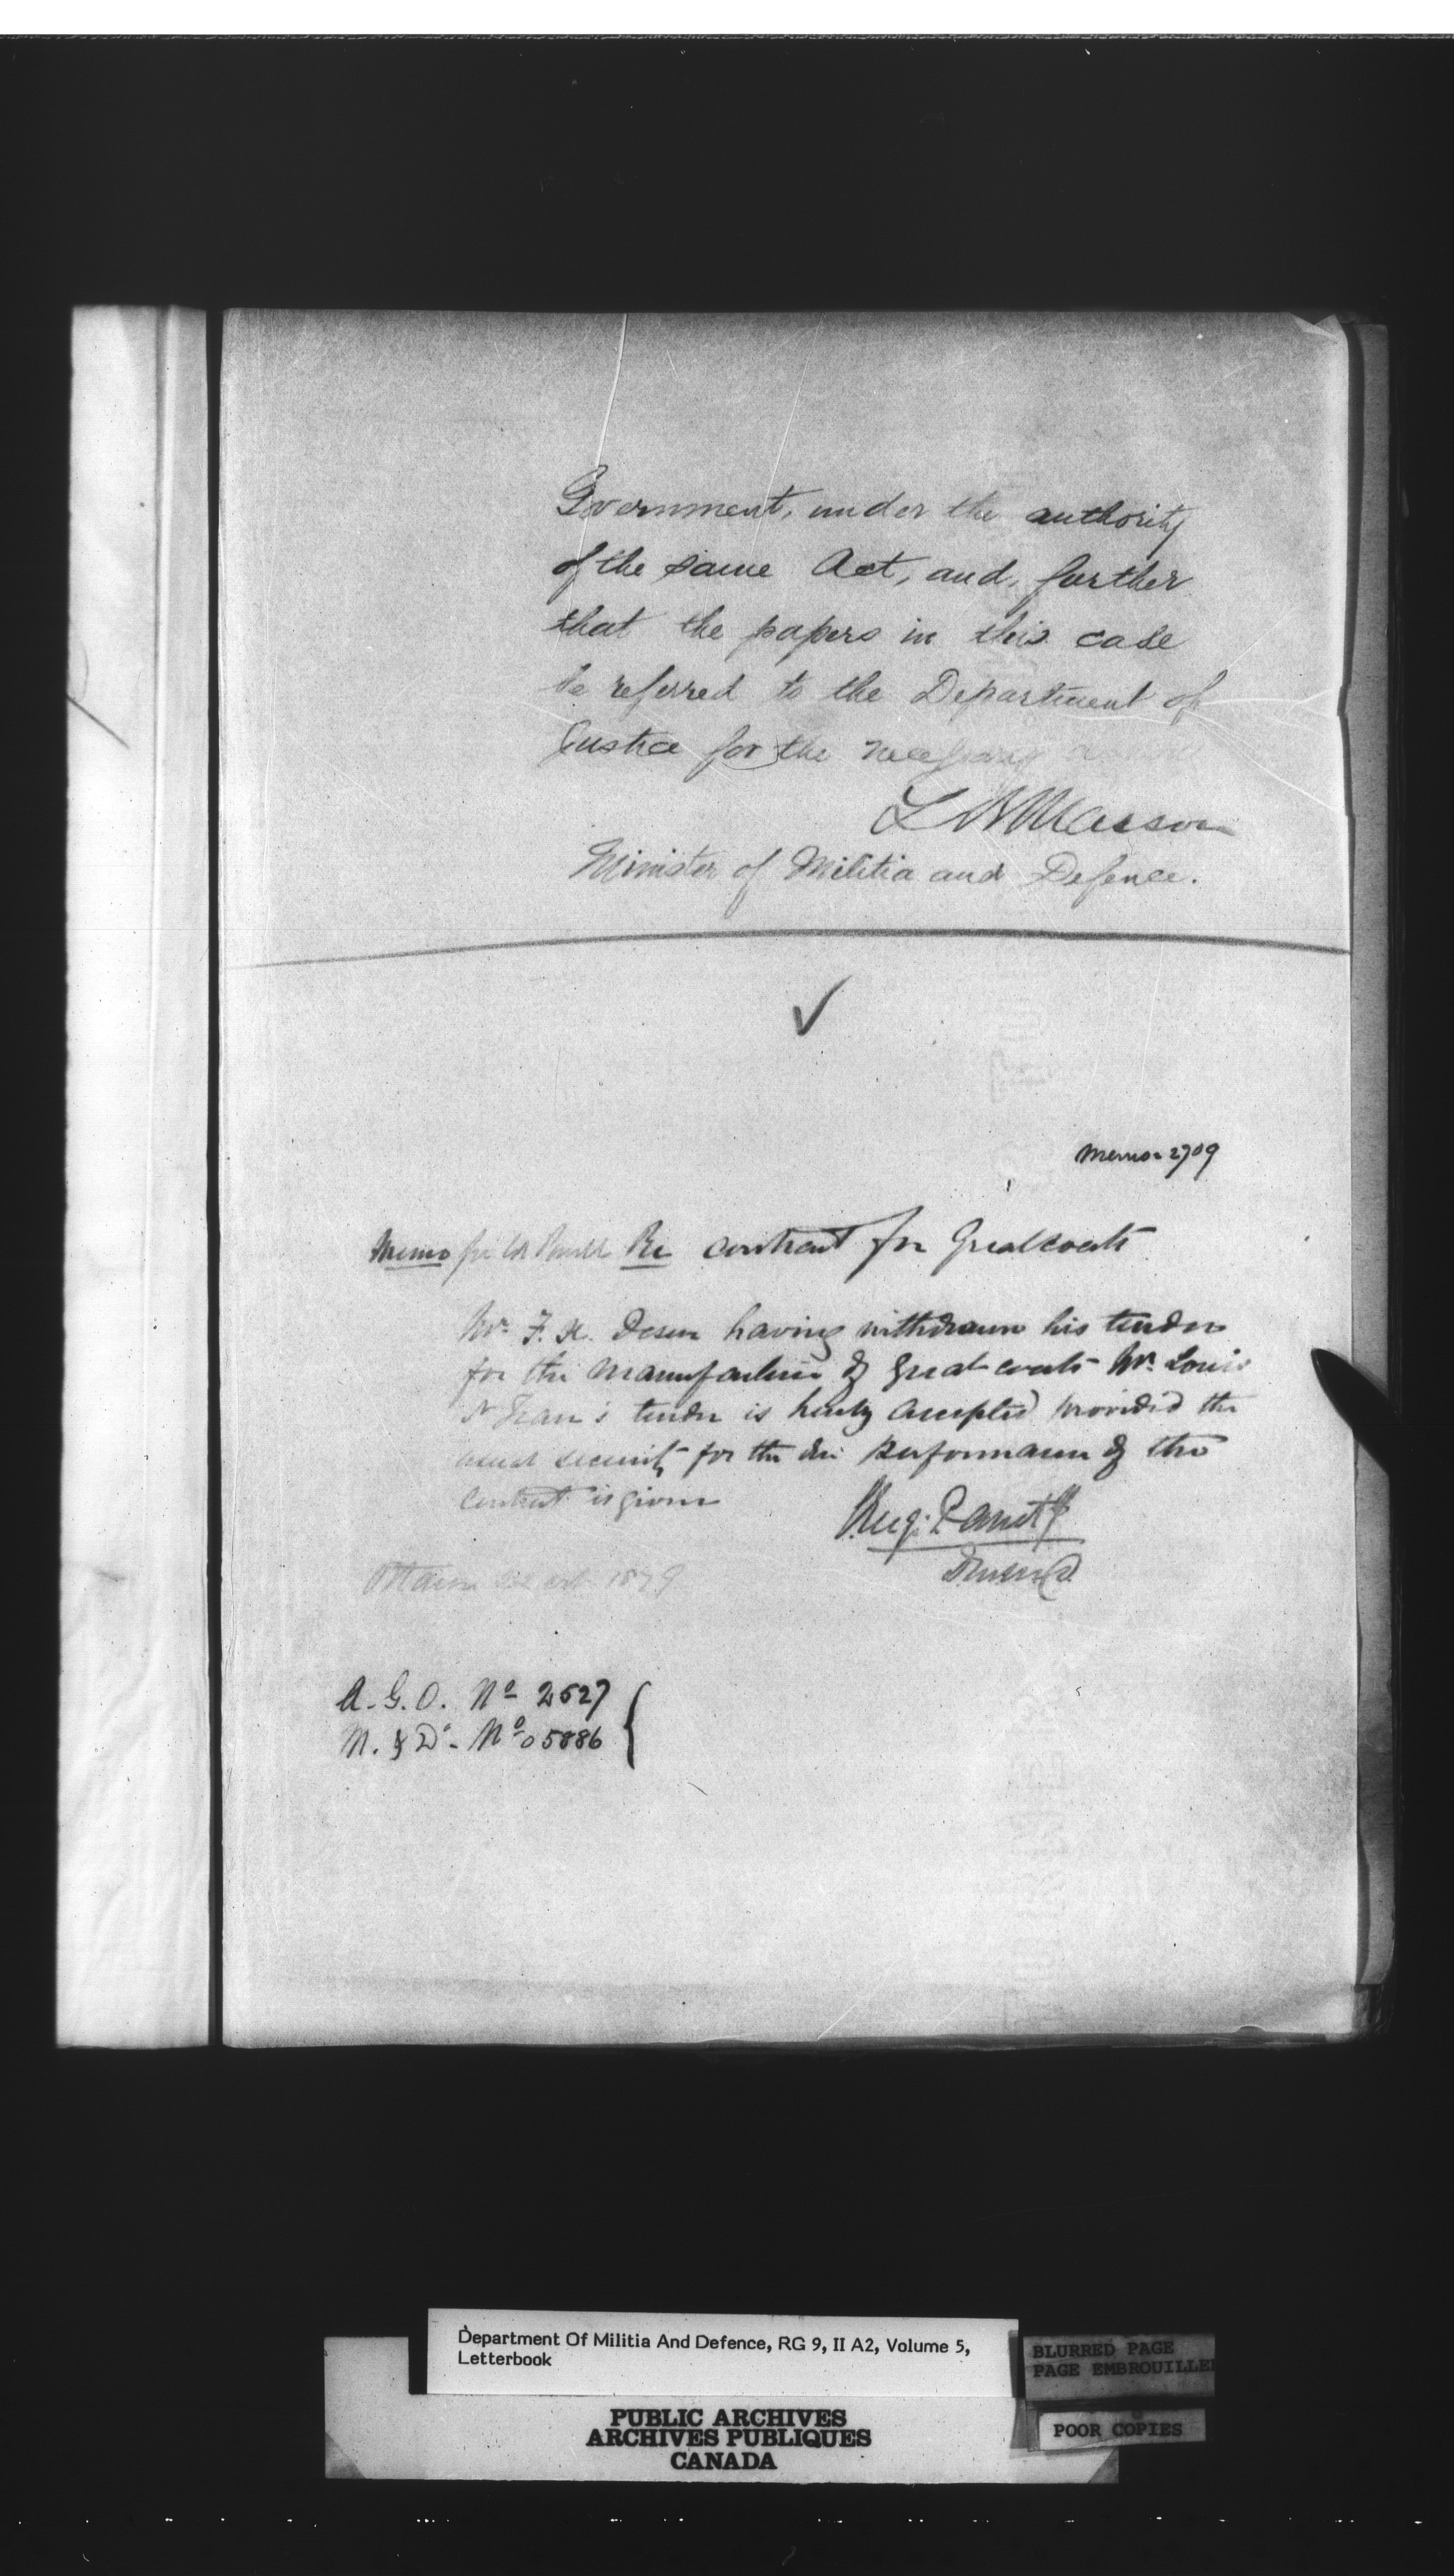 Government, under the authority
of the same Act, and, further
that the papers in this case
be referred to the Department of
Justice for the necessary
L R Masson
Minister of Militia and Defence.
Memo 2709
Memo for Re contract for Greatcoats
Mr. F. X. having withdrawn his tender
for the manufacture of great coats Mr. Louis
N Jean's tender is hereby accepted provided the
usual security for the due performance of the
contract is given
Eug. Panet
DMM&D
Ottawa 1879
A.G.O. No 2527
M. & D. No 05886
Department Of Militia And Defence, RG 9, II A2, Volume 5,
Letterbook
BLURRED PAGE
PAGE EMBROUILLE
PUBLIC ARCHIVES
ARCHIVES PUBLIQUES
CANADA
POOR COPIES